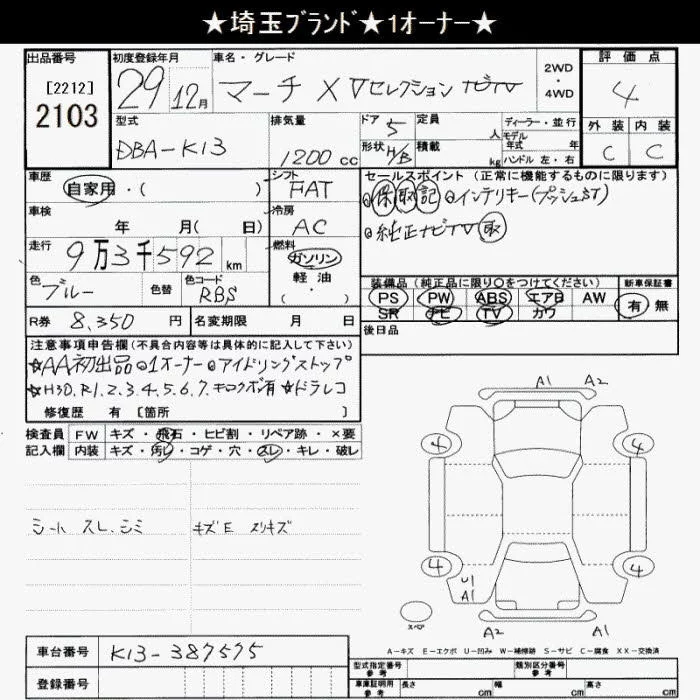 ★埼玉ﾌﾞﾗﾝﾄﾞ★1オーナー★
出品番号
[2212]
2103
初度登録年月
29年 12月
車名・グレード
マーチ X Vセレクション ナビTV
2WD
・
4WD
評価点
4
外装 内装
C C
型式
DBA-K13
排気量
1200cc
ドア 5
形状 H/B
定員 人
積載 kg
ディーラー・並行
モデル年式 年
ハンドル 左・右
車歴
自家用・( )
シフト
FAT
セールスポイント(正常に機能するものに限ります)
◎保取記◎インテリキー(プッシュST)
◎純正ナビTV取
車検
年 月( 日)
冷房
AC
走行
9万3千592km
燃料
ガソリン
軽油
・( )
色
ブルー
色替
色コード
RBS
装備品(純正品に限り○をつけてください)
PS PW ABS エアB AW
SR ナビ TV カワ
新車保証書
有 無
R券 8,350円
名変期限 月 日
後日品
注意事項申告欄(不具合内容等は具体的に記入して下さい)
☆AA初出品◎1オーナー◎アイドリングストップ
☆H30.R1.2.3.4.5.6.7.キロクボ有☆ドラレコ
修復歴 有[箇所 ]
検査員記入欄
FW キズ・飛石・ヒビ割・リペア跡・×要
内装 キズ・汚レ・コゲ・穴・スレ・キレ・破レ
シート スレ.シミ
キズE スリキズ
A1 A2
4 4
4 4
U1
A1
スペア
A2 A1
A-キズ E-エクボ U-凹み W-補修跡 S-サビ C-腐食 XX-交換済
車台番号 K13-387575
登録番号
型式指定番号 参考
類別区分番号 参考
車庫証明用 参考 長さ cm 幅 cm 高さ cm